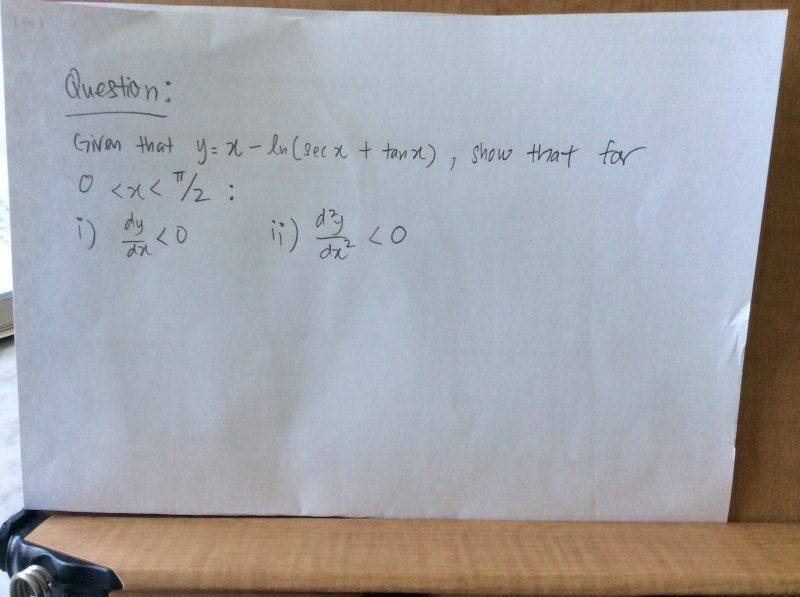 Question:
Given that y = x - ln(sec x + tan x), show that for
0 < x < π/2 :
i) dy/dx < 0 ii) d²y/dx² < 0